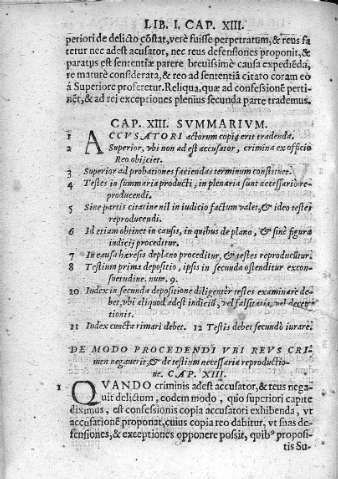 LIB. I. CAP. XIII.
periori de delicto cõstat, verè fuisse perpetratum, & reus fa
tetur nec adest acusator, nec reus defensiones proponit, &
paratus est sententiæ parere breuissimè causa expediẽda,
re maturè considerata, & reo ad sententiã citato coram eo
à Superiore proferetur. Reliqua, quæ ad confessionẽ perti-
nẽt, & ad rei exceptiones plenius secunda parte trademus.
CAP. XIII. SVMMARIVM.
1 ACCVSATORI actorum copia erit tradenda.
2 Superior, vbi non ad est accusator, crimina ex officio
Reo obijciet.
3 Superior ad probationes faciendas terminum constituet.
4 Testes in summaria producti, in plenaria sunt necessariò re-
producendi.
5 Sine partis citatine nil in iudicio factum valet, & ideo testes
reproducendi.
6 Id etiam obtinet in causis, in quibus de plano, & sinè figura
iudicij proceditur.
7 In causa hæresis de plano proceditur, & testes reproducũtur.
8 Testium prima depositio, ipsis in secunda ostenditur ex con-
suetudine. num. 9.
10 Iudex in secunda depositione diligenter testes examinare de-
bet, vbi aliquod adest indiciũ, vel falsitatis, vel decep-
tionis.
11 Iudex cuncta rimari debet. 12 Testis debet secundò iurare.
DE MODO PROCEDENDI VBI REVS CRI-
men negauerit, & de testium necessaria reproductio-
ne. CAP. XIII.
1 QVANDO criminis adest accusator, & reus nega-
uit delictum, eodem modo, quo superiori capite
diximus, est confessionis copia accusatori exhibenda, vt
accusationẽ proponat, cuius copia reo dabitur, vt suas de-
fensiones, & exceptiones opponere possit, quibꝰ proposi-
tis Su-